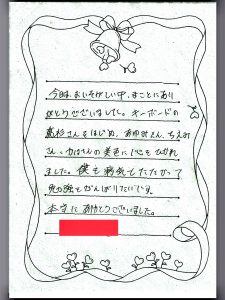 今日は、おいそがしい中、まことにあり
がとうございました。キーボードの
高杉さんをはじめ、あゆみさん、ちえみ
さん、かほさんの美色に心をひかれ
ました。僕も病気とたたかって
勉強をがんばりたいです。
本当にありがとうございました。